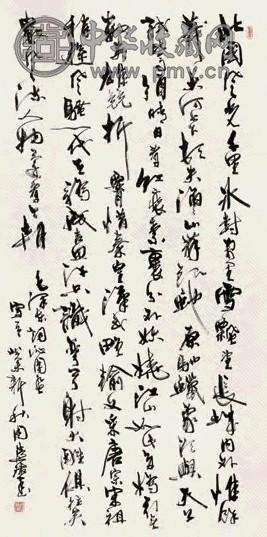 中华收藏网
北国风光千里冰封万里雪飘望长城内外惟余
莽莽大河上下顿失滔滔山舞银蛇原驰蜡象欲与天公
试比高须晴日看红装素裹分外妖娆江山如此多娇引无
数英雄竞折腰惜秦皇汉武略输文采唐宗宋祖
稍逊风骚一代天骄成吉思汗只识弯弓射大雕俱往矣
数风流人物还看今朝 毛泽东词沁园春